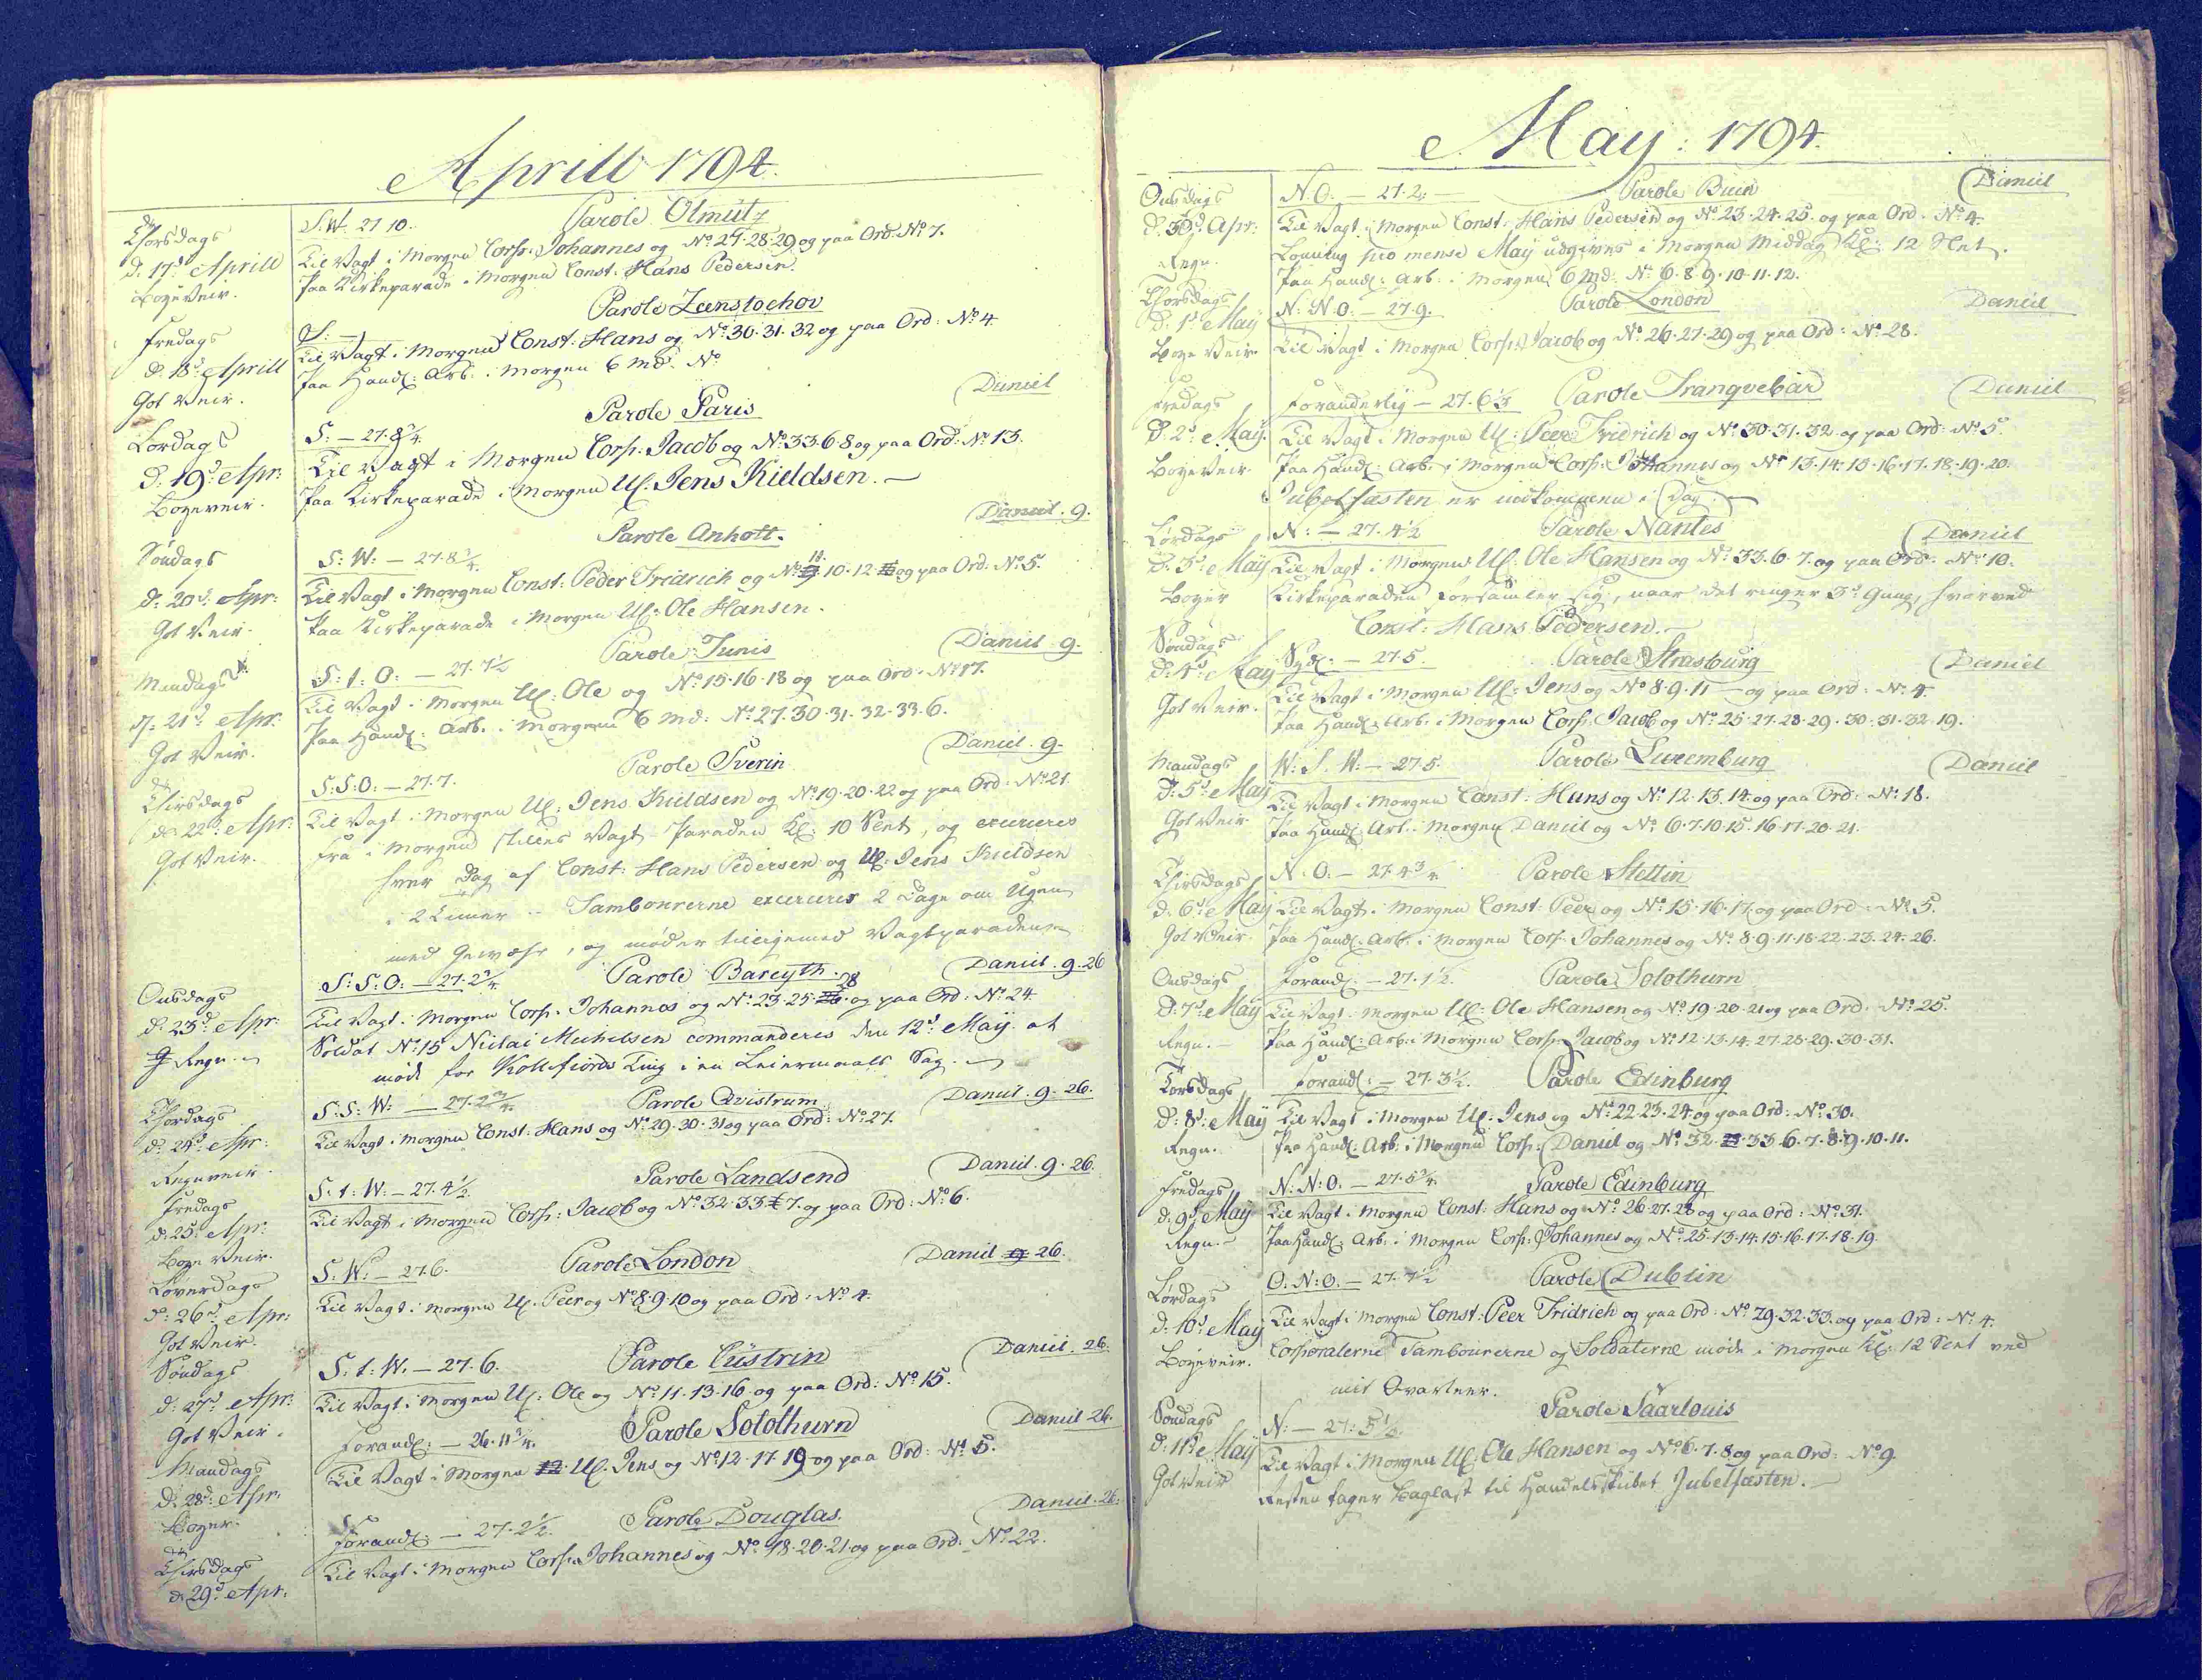 Aprill 1794.
Thorsdags
d: 17d Aprill
Bøye Veir.
S.W. 27 10. Parole Olmütz
Til Vagt i Morgen Corp: Johannes og No 27-28-29 og paa Ord: No 7.
Paa Kirkeparade i Morgen Const: Hans Pedersen.
Fredags
d: 18d Aprill
Got Veir.
Parole Zenstochov
S: —
Til Vagt i Morgen Const: Hans og No 30-31-32 og paa Ord: No 4.
Paa Handl: Arb: i Morgen 6 Md: No
Lørdags
d: 19d Apr:
Bøyeveir.
Parole Paris Daniel
S: — 27-8 3/4
Til Vagt i Morgen Corp: Jacob og No 33-6-8 og paa Ord: No 13.
Paa Kirkeparade i Morgen Uf: Jens Kieldsen. —
Søndags
d: 20d Apr:
Got Veir.
Parole Anholt. Daniel. 9.
S: W: — 27-8 3/4.
Til Vagt i Morgen Const: Peder Fridrich og No 11. 10-12 og paa Ord: No 5.
Paa Kirkeparade i Morgen Uf: Ole Hansen.
Mandags
d: 21d Apr:
Got Veir.
Parole Tunis Daniel 9.
S: t: O: — 27-7 1/2
Til Vagt i Morgen Uf: Ole og No 15-16-18 og paa Ord: No 17.
Paa Handl: Arb: i Morgen 6 Md: No 27-30-31-32-33-6.
Thirsdags
d: 22d Apr:
Got Veir.
Parole Sverin Daniel. 9.
S:S:O: — 27-7.
Til Vagt i Morgen Uf: Jens Kieldsen og No 19-20-22 og paa Ord: No 21.
Fra i Morgen stilles Vagt-Paraden Kl: 10 Slet, og exerceres
hver Dag af Const: Hans Pedersen og Uf: Jens Kieldsen
i 2 Timer — Tambourerne exercerer 2 Dage om Ugen
med Gewæhr, og møder tilligemed Vagtparaden
Onsdags
d: 23d Apr:
Regn.
S:S:O: — 27-2 3/4 Parole Bareyth. Daniel. 9-26
Til Vagt i Morgen Corp: Johannes og No 23-25-28 og paa Ord: No 24
Soldat No 15 Niclai Michelsen commanderes den 12d May at
møde for Kollefiords Ting i en Leiermaals Sag.
Thordags
d: 24d Apr:
Regnveir.
S:S:W: — 27-2 3/4. Parole Qvistrum Daniel. 9-26.
Til Vagt i Morgen Const: Hans og No 29-30-31 og paa Ord: No 27.
Fredags
d: 25d Apr:
Bøye Veir.
S:t:W: — 27-4 1/2 Parole Landsend Daniel. 9-26.
Til Vagt i Morgen Corp: Jacob og No 32-33-7. og paa Ord: No 6.
Løverdags
d: 26d Apr:
Got Veir.
S:W: — 27.6. Parole London Daniel 9. 26.
Til Vagt i Morgen Uf: Peer og No 8-9-10 og paa Ord: No 4.
Søndags
d: 27d Apr:
Got Veir.
S:t:W: — 27-6. Parole Cüstrin Daniel. 26.
Til Vagt i Morgen Uf: Ole og No 11-13-16 og paa Ord: No 15.
Mandags
d: 28d Apr:
Bøyer.
Forandl: — 26-11 3/4. Parole Solothurn Daniel 26.
Til Vagt i Morgen Uf: Jens og No 12-17-19 og paa Ord: No 5.
Thirsdags
d: 29d Apr:
Forandl: — 27-2 1/2. Parole Douglas. Daniel. 26.
Til Vagt i Morgen Corp: Johannes og No 18-20-21 og paa Ord: No 22.
May: 1794.
Onsdags
d: 30d Apr:
Regn.
N.O. — 27-2. Parole Buen Daniel
Til Vagt i Morgen Const: Hans Pedersen og No 23-24-25. og paa Ord: No 4.
Lønning pro mense May udgives i Morgen Middag Kl: 12 Slet.
Paa Handl: Arb: i Morgen 6 Md: No 6-8-9-10-11-12.
Thorsdags
d: 1d May
Bøye Veir.
N: N.O. — 27-9. Parole London Daniel
Til Vagt i Morgen Corp: Jacob og No 26-27-29 og paa Ord: No 28.
Fredags
d: 2d May.
Bøye Veir.
Foranderlig — 27-6 1/3 Parole Tranqvebar Daniel
Til Vagt i Morgen Uf: Peer Fridrich og No 30-31-32 og paa Ord: No 5.
Paa Handl: Arb: i Morgen Corp: Johannes og No 13-14-15-16-17-18-19-20.
Jubelfæsten er indkommen i Dag. —
Lørdags
d: 3d May
Bøyer
N: — 27-4 1/2 Parole Nantes Daniel
Til Vagt i Morgen Uf: Ole Hansen og No 33-6-7. og paa Ord: No 10.
Kirkeparaden forsamler sig, naar det ringer 3d Gang, hvorved
Const: Hans Pedersen. —
Søndags
d: 4d May
Got Veir.
Sydl: — 27-5. Parole Strasburg Daniel
Til Vagt i Morgen Uf: Jens og No 8-9-11 — og paa Ord: No 4.
Paa Handl: Arb: i Morgen Corp: Jacob og No 25-27-28-29-30-31-32-19.
Mandags
d: 5d May
Got Veir
W: S. W: — 27-5. Parole Luxemburg Daniel
Til Vagt i Morgen Const: Hans og No 12-13-14 og paa Ord: No 18.
Paa Handl: Arb: i Morgen Daniel og No 6-7-10-15-16-17-20-21.
Thirsdags
d: 6d May
Got Veir.
N: O. — 27-4 3/4. Parole Stettin
Til Vagt i Morgen Const: Peer og No 15-16-17 og paa Ord: No 5.
Paa Handl: Arb: i Morgen Corp: Johannes og No 8-9-11-18-22-23-24-26.
Onsdags
d: 7d May
Regn. —
Forandl: — 27-1 1/2. Parole Solothurn
Til Vagt i Morgen Uf: Ole Hansen og No 19-20-21 og paa Ord: No 25.
Paa Handl: Arb: i Morgen Corp: Jacob og No 12-13-14-27-28-29-30-31.
Torsdags
d: 8d May
Regn.
Forandl: — 27-3 1/2. Parole Edinburg
Til Vagt i Morgen Uf: Jens og No 22-23-24 og paa Ord: No 30.
Paa Handl: Arb: i Morgen Corp: Daniel og No 32-33-6-7-8-9-10-11.
Fredags
d: 9d May
Regn. —
N: N: O. — 27-5 3/4. Parole Edinburg
Til Vagt i Morgen Const: Hans og No 26-27-28 og paa Ord: No 31.
Paa Handl: Arb: i Morgen Corp: Johannes og No 25-13-14-15-16-17-18-19.
Lørdags
d: 10d May
Bøyeveir.
O: N: O. — 27-7 1/2 Parole Dublin
Til Vagt i Morgen Const: Peer Fridrich og paa Ord: No 29-32-33. og paa Ord: No 4.
Corporalerne Tambourerne og Soldaterne møde i Morgen Kl: 12 Slet ved
mit Qvarteer.
Søndags
d: 11d May
Got Veir
N: — 27: 5 1/2 Parole Saarlouis
Til Vagt i Morgen Uf: Ole Hansen og No 6-7-8 og paa Ord: No 9.
Resten tager Baglast til Handelsskibet Jubelfæsten. —